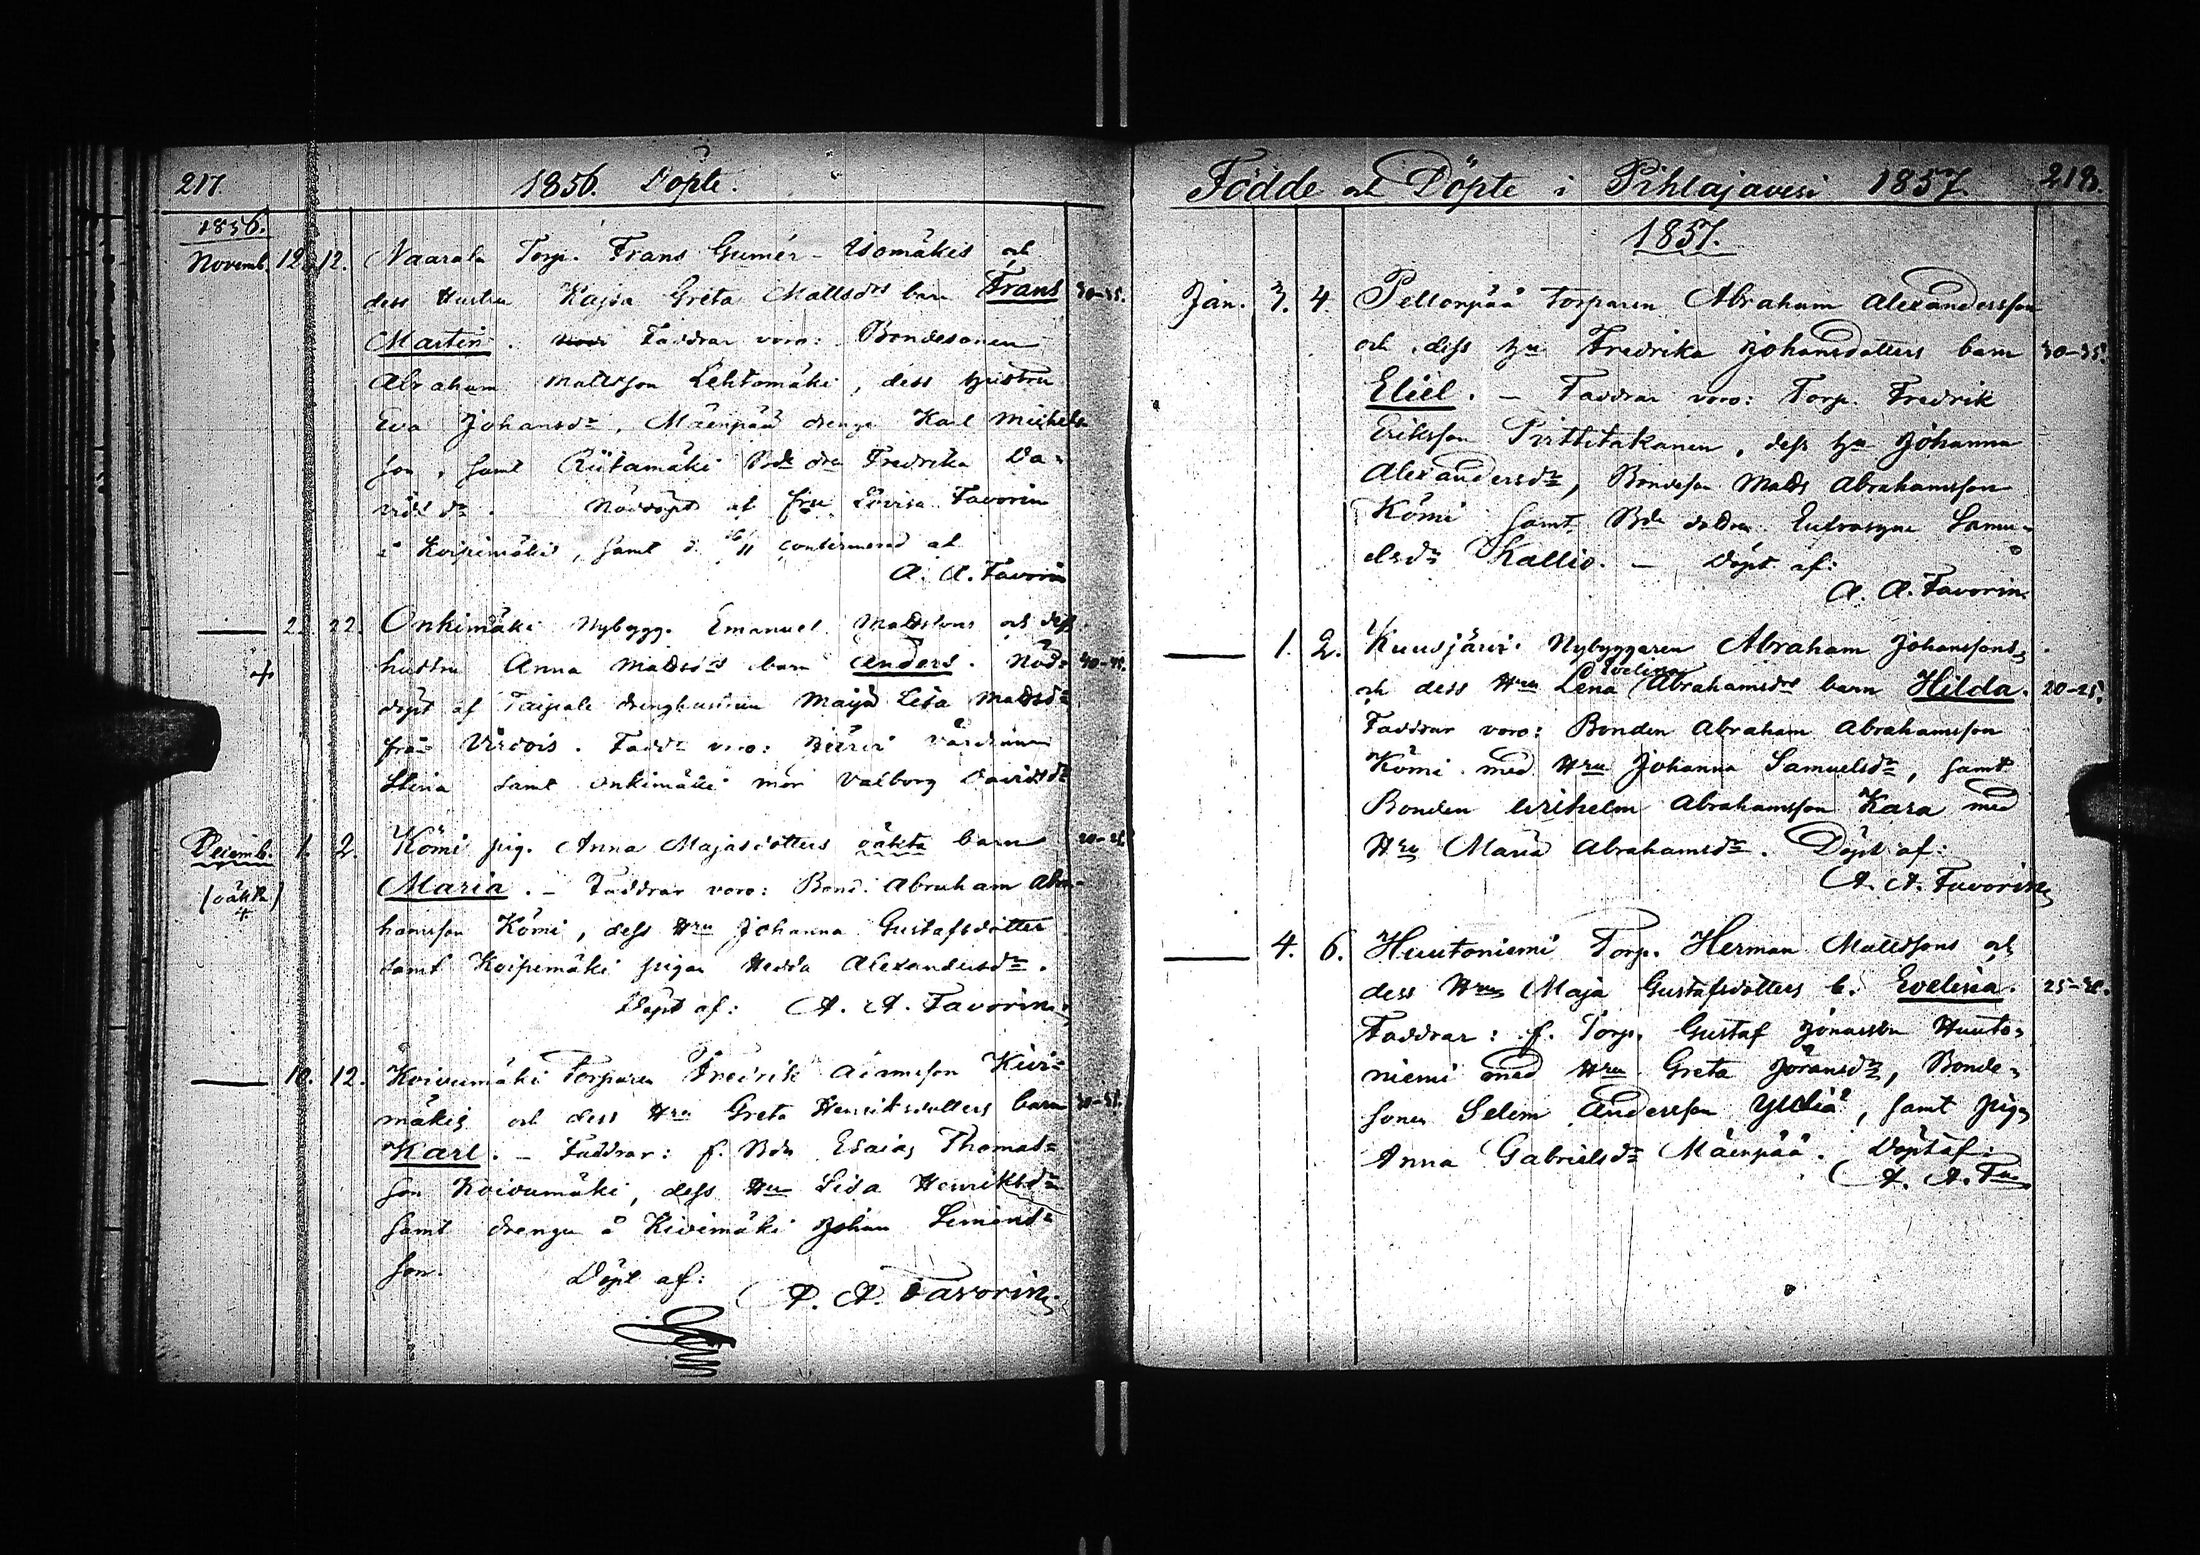 217. 1856. Döpte.
1856.
Novemb. 12. 12. Naarala Torp. Frans Gumér Isomäkis och
dess Hustru Kajsa Greta Mattsdrs barn Frans 30-35.
Martin. Faddrar voro: Bondesonen
Abraham Mattsson Lehtomäki, dess hustru
Eva Johansdr, Mäenpää drenge Karl Michels
son, samt Riitamäki Bde dra Fredrika Da-
vidsdr. Nöddöpt af fru Lovisa Favorin
i Koipimäki, samt d. 16/11 confirmerad af
A. A. Favorin
22. 22. Onkimäki Nybygg. Emanuel Mattssons och dess
+ hustru Anna Mattsdrs barn Anders. Nöd- 40-45.
döpt af Taipale drenghustrun Maija Lisa Mattsdr
från Virdois. Faddr voro: Järvi värdinnan
Stina samt Onkimäki mor Valborg Davidsdr
Decemb. 1. 2. Kömi pig. Anna Majasdotters oäkta barn 20-25.
(oäkta) Maria. - Faddrar voro: Bond. Abraham Abra-
+ hamsson Kömi, dess Hru Johanna Gustafsdotter
samt Koipimäki pigan Hedda Alexandersdr.
Döpt af: A. A. Favorin.
10. 12. Koivumäki Torparen Fredrik Adamsson Kivi-
mäkis och dess Hru Greta Henriksdotters barn 30-35.
Karl. - Faddrar: f. Bdn Esaias Thomas-
son Koivumäki, dess Hru Lisa Henriksdr
samt drengen å Kivimäki Johan
son. Döpt af: A. A. Favorin.
Födde och Döpte i Pihlajavesi 1857 218.
1857.
Jan. 3. 4. Peltonpää torparen Abraham Alexandersson
och dess hu Fredrika Johansdotters barn 30-35.
Eliel. - Faddrar voro: Torp. Fredrik
Eriksson Pirttitakanen, dess hu Johanna
Alexandersdr, Bondeson Matts Abrahamsson
Kömi samt Bde dottra Eufrosyne Samu-
elsdr Kallio. - Döpt af:
A. A. Favorin.
1. 2. Kuusjärvi Nybyggaren Abraham Johanssons
Evelina
och dess Hru Lena Abrahamsdrs barn Hilda. 20-25.
Faddrar voro: Bonden Abraham Abrahamsson
Kömi med Hru Johanna Samuelsdr, samt
Bonden Wilhelm Abrahamsson Kara med
Hru Maria Abrahamsdr. Döpt af:
A. A. Favorin
4. 6. Huutoniemi Torp. Herman Mattssons och
dess Hrus Maja Gustafsdotters b. Evelina. 25-30.
Faddrar: f. Torp. Gustaf Jönasson Huuto-
niemi med Hru Greta Jöransdr, Bonde-
sonen Selim Andersson Yliiä, samt pig.
Anna Gabrielsdr Mäenpää. Döpt af:
A. A. Fn